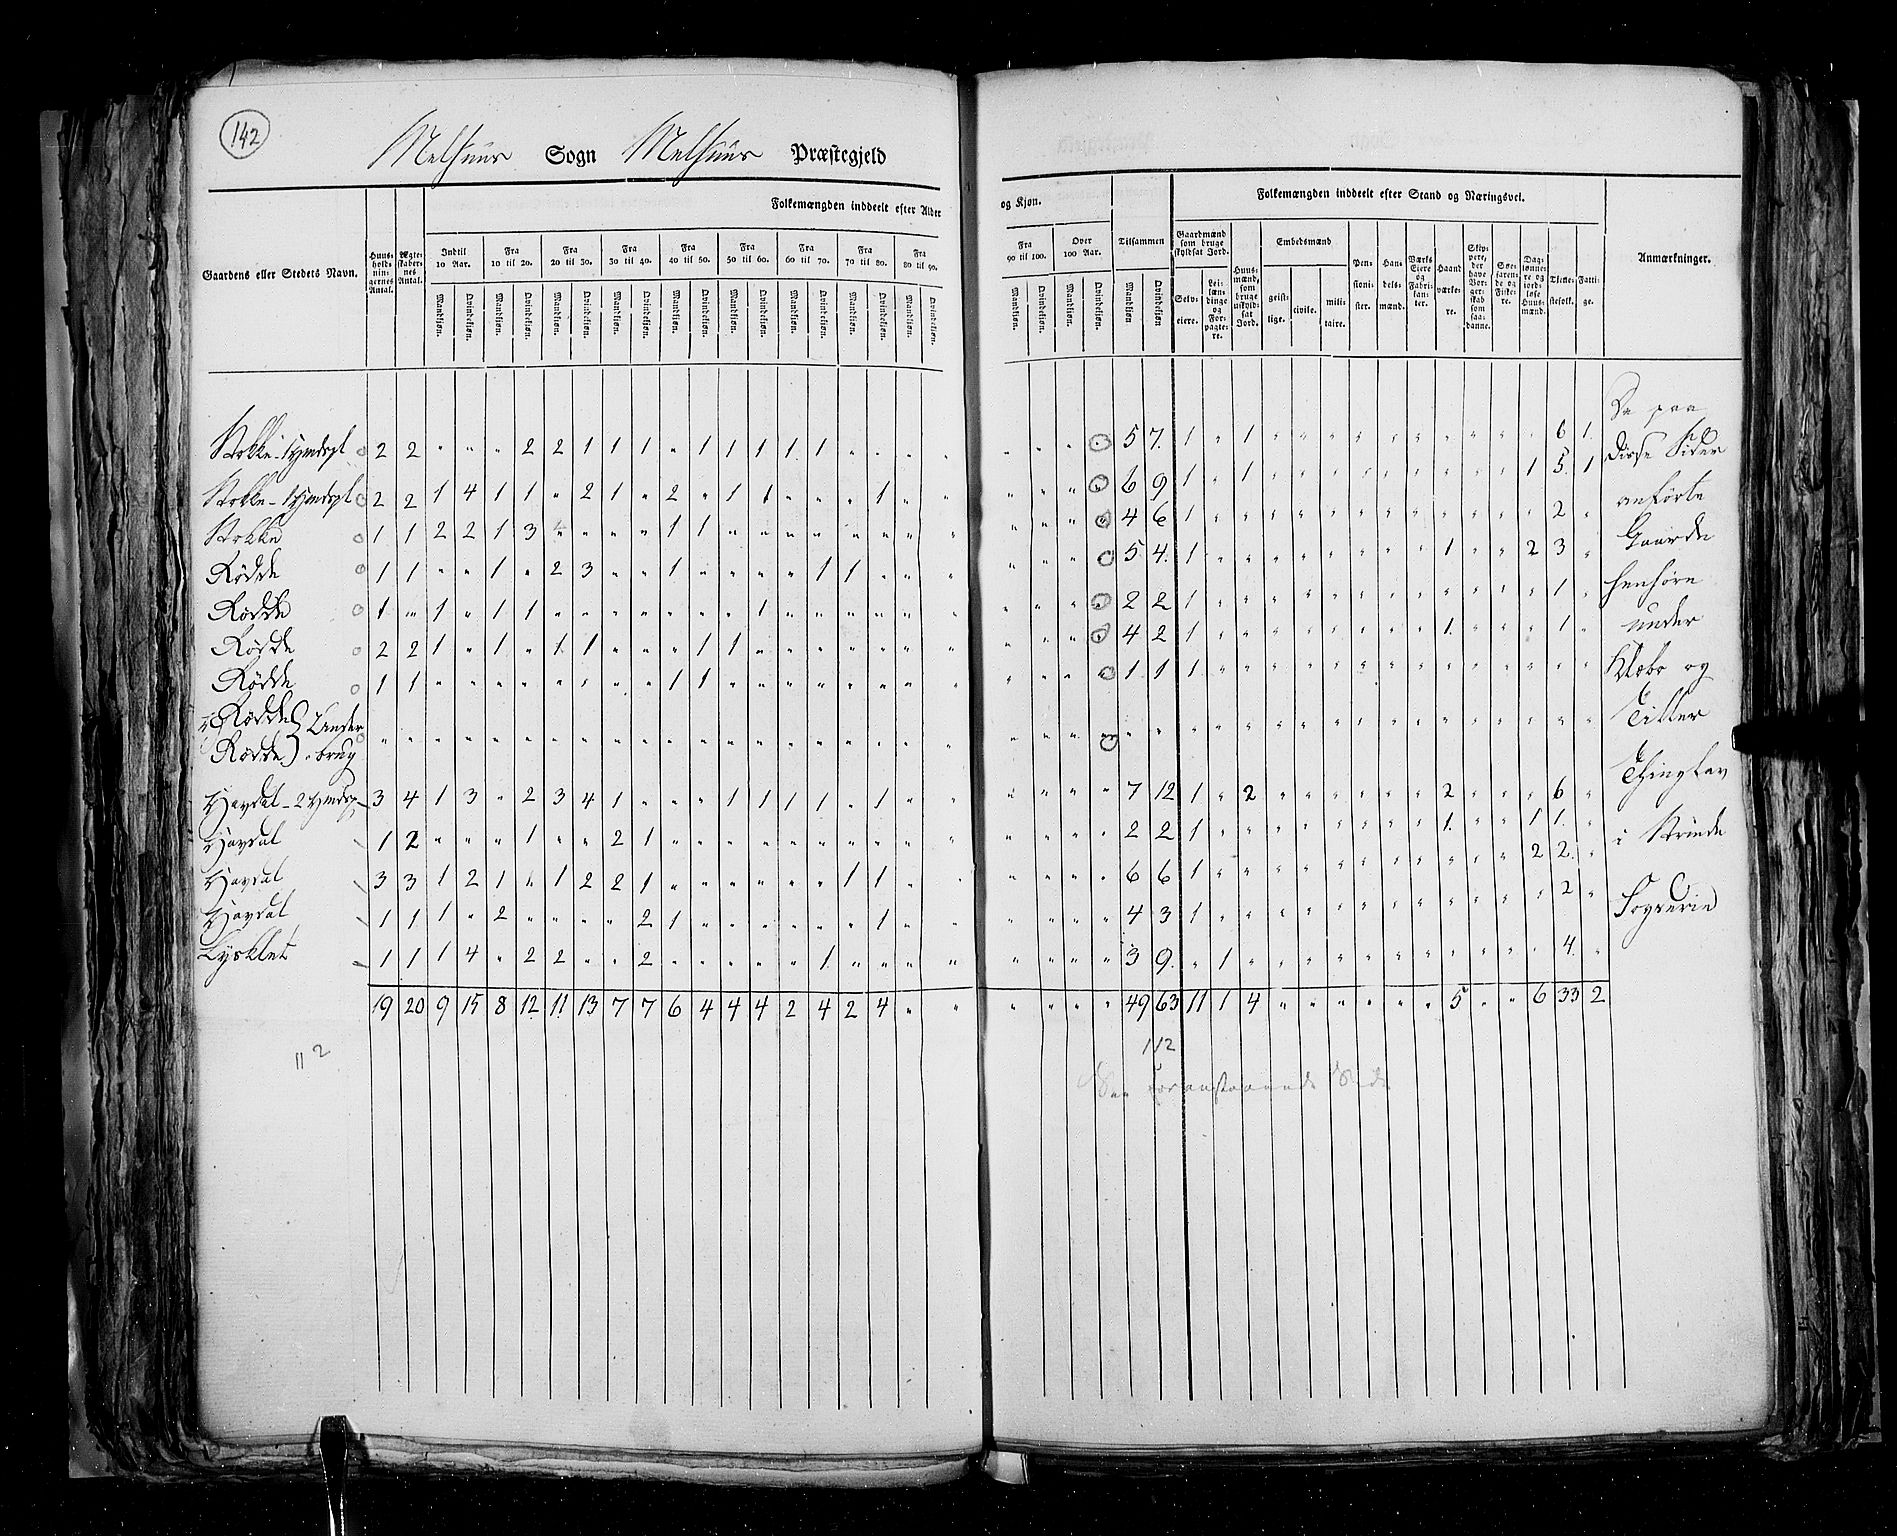 142
Melhuus Sogn Melhuus Præstegjeld
Folkemængden inddeelt efter Alder og Kjøn.
Folkemængden inddeelt efter Stand og Næringsvei.
Gaardens eller Stedets Navn.
Huusholdningernes Antal.
Ægteskabernes Antal.
Indtil 10 Aar.
Fra 10 til 20.
Fra 20 til 30.
Fra 30 til 40.
Fra 40 til 50.
Fra 50 til 60.
Fra 60 til 70.
Fra 70 til 80.
Fra 80 til 90.
Fra 90 til 100.
Over 100 Aar.
Tilsammen
Mandkiøn. Qvindekiøn.
Gaardmænd som bruge skyldsat Jord.
Selveiere.
Leilændinge og Forpagtere.
Huusmænd, som bruge uskyldsat Jord.
Embedsmænd
geistlige. civile. militaire.
Pensionister.
Handelsmænd.
Værks Eiere og Fabrikanter.
Haandværkere.
Skippere, der have Borgerskab som saadanne.
Søefarende og Fiskere.
Daglønnere og jordløse Huusmænd.
Tienestefolk.
Fattige.
Anmærkninger.
Stokke - 1 Hmdspl 2 2 " " " 2 2 1 1 1 " 1 1 1 1 1 " " " " " " " 5 7 1 " 1 " " " " " " " " " " 6 1
Stokke - 1 Hmdspl 2 2 1 4 1 1 " 2 1 " 2 " 1 1 " " " 1 " " " " " 6 9 1 " 1 " " " " " " " " " 1 5 1
Stokke 1 1 2 2 1 3 " " " " 1 1 " " " " " " " " " " " 4 6 1 " " " " " " " " " " " " 2 "
Rødde 1 1 " " 1 " 2 3 " " 1 " " " " 1 1 " " " " " " 5 4 1 " " " " " " " " 1 " " 2 3 "
Rødde 1 " 1 " 1 1 " " " " " " " 1 " " " " " " " " " 2 2 1 " " " " " " " " " " " " 1 "
Rødde 2 2 1 " 1 " 1 1 " " " 1 1 " " " " " " " " " " 4 2 1 " " " " " " " " 1 " " " 1 "
Rødde 1 1 " " " " " " " " 1 1 " " " " " " " " " " " 1 1 1 " " " " " " " " " " " " " "
Rødde } Under
Rødde } brug " " " " " " " " " " " " " " " " " " " " " " "
Havdal - 2 Hmdspl 3 4 1 3 " 2 3 4 1 " " " 1 1 1 1 " 1 " " " " " 7 12 1 " 2 " " " " " " 2 " " " 6 "
Havdal 1 2 " " " 1 " " 2 1 " " " " " " " " " " " " " 2 2 1 " " " " " " " " 1 " " 1 1 "
Havdal 3 3 1 2 1 " 1 2 2 1 " " " " " 1 1 " " " " " 6 6 1 " " " " " " " " " " " 2 2 "
Havdal 1 1 1 " 2 " " " " 2 1 " " " " " " 1 " " " " " 4 3 1 " " " " " " " " " " " " 2 "
Lysklet 1 1 1 4 " 2 2 " " 2 " " " " " 1 " " " " " " " 3 9 " 1 " " " " " " " " " " " 4 "
19 20 9 15 8 12 11 13 7 7 6 4 4 4 2 4 2 4 " " " " " " 49 63 11 1 4 " " " " " " 5 " " 6 33 2
112
112
See foranstaaende Side
De paa
disse Sider
anførte
Gaarde
henhøre
under
Klæbo og
Tiller
Thinglav
i Strinde
Fogderie